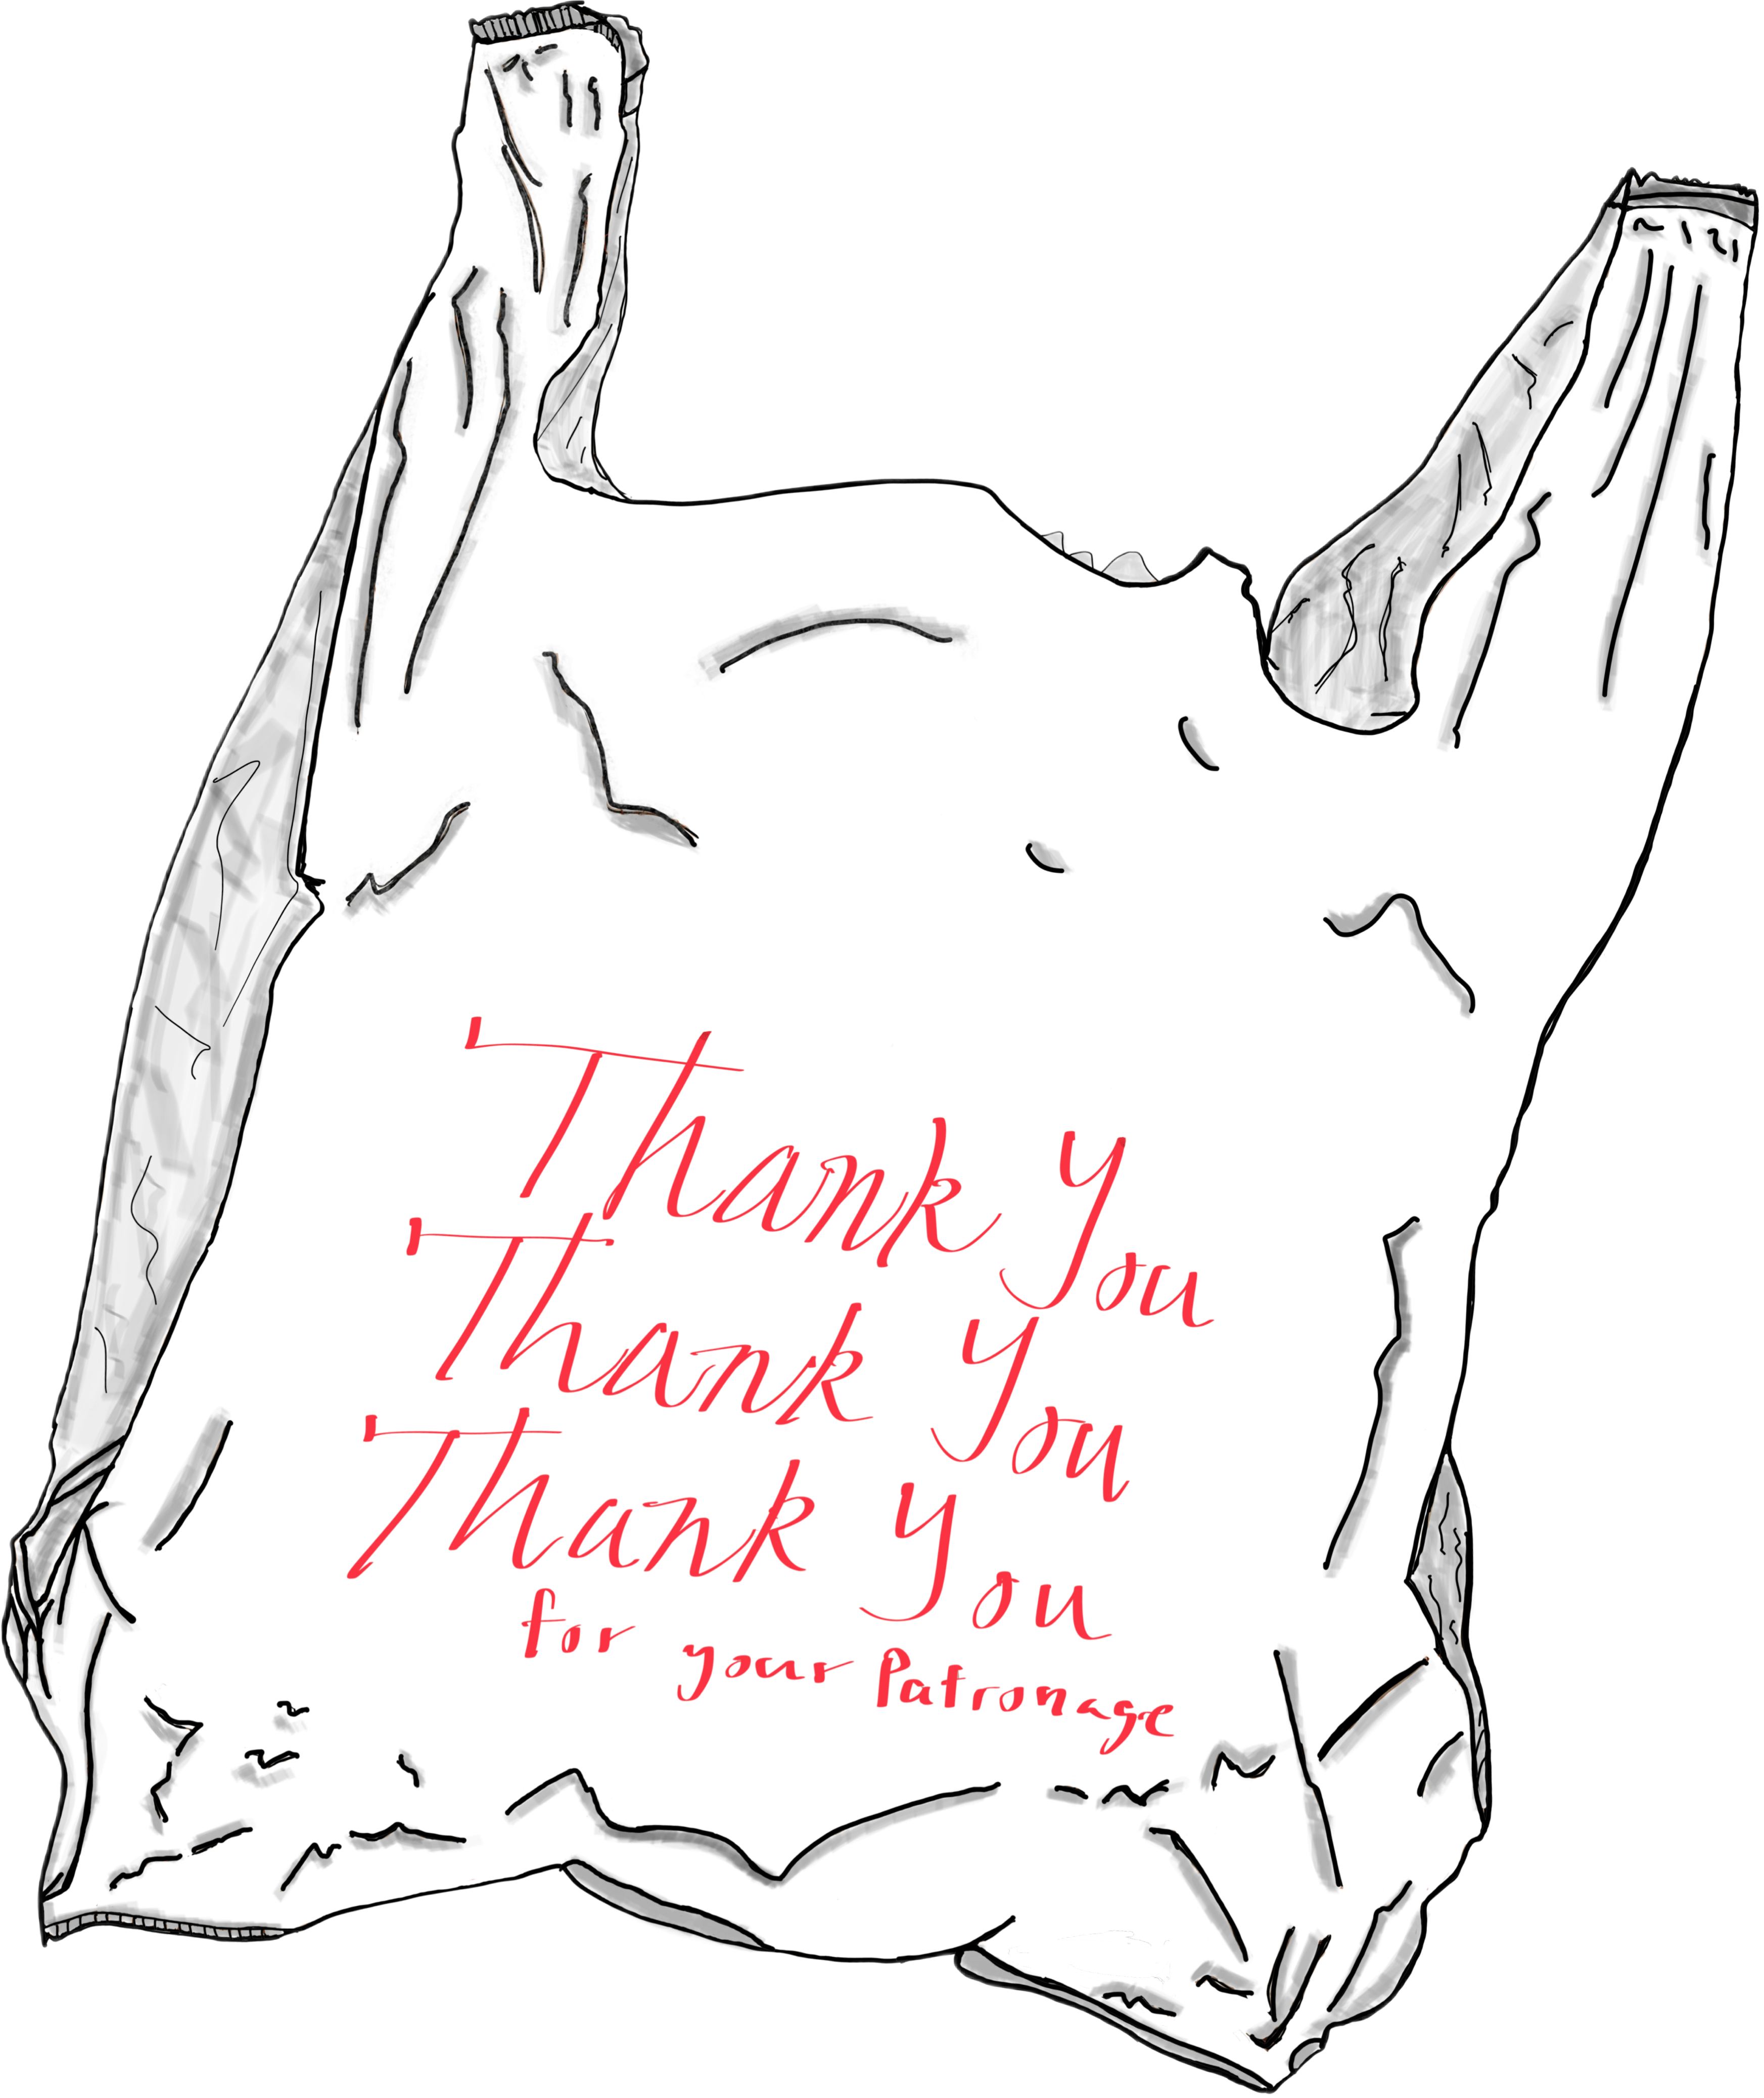 Thank You
Thank You
Thank You
for your Patronage